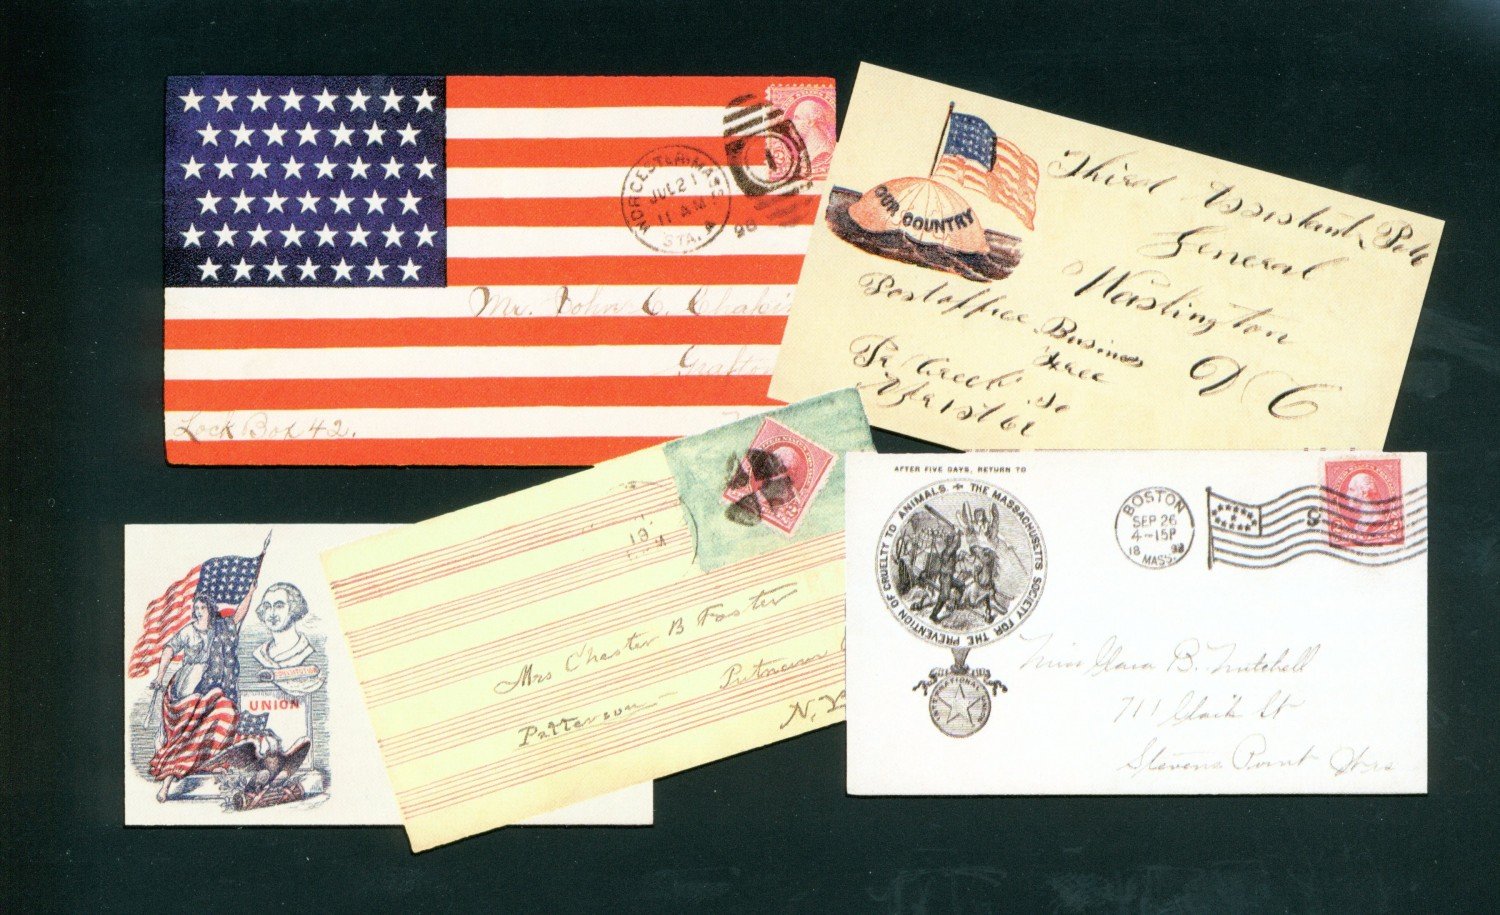 WORCESTER, MASS.
JUL 21
11 AM
98
STA. A
1
Mr. John C.
Grafton
Lock Box 42.
OUR COUNTRY
Third Assistant Post
General
Washington
D C
Postoffice Business
Free
Creek
UNION
19
Mrs Chester B Foster
Patterson
Putnam
N.Y.
AFTER FIVE DAYS, RETURN TO
THE MASSACHUSETTS SOCIETY FOR THE PREVENTION OF CRUELTY TO ANIMALS
BOSTON
SEP 26
4-15P
18 98
MASS.
Miss Clara B. Mitchell
711 Clark St
Stevens Point Wis